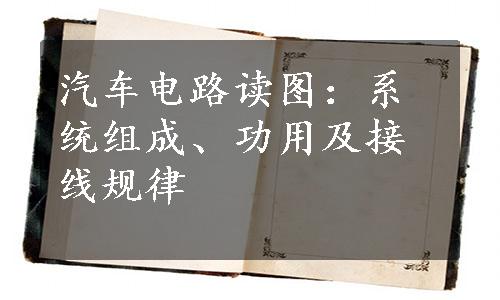 汽车电路读图：系
统组成、功用及接
线规律